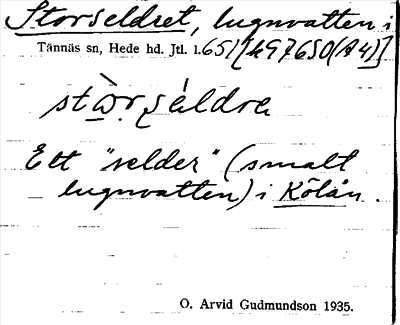 Storseldret, lugnvatten i
Tännäs sn, Hede hd. Jtl. l. 651 [h97650(A4)]
stɷ̀r ʂéldra
Ett "selder" (smalt
lugnvatten) i Kölån.
O. Arvid Gudmundson 1935.